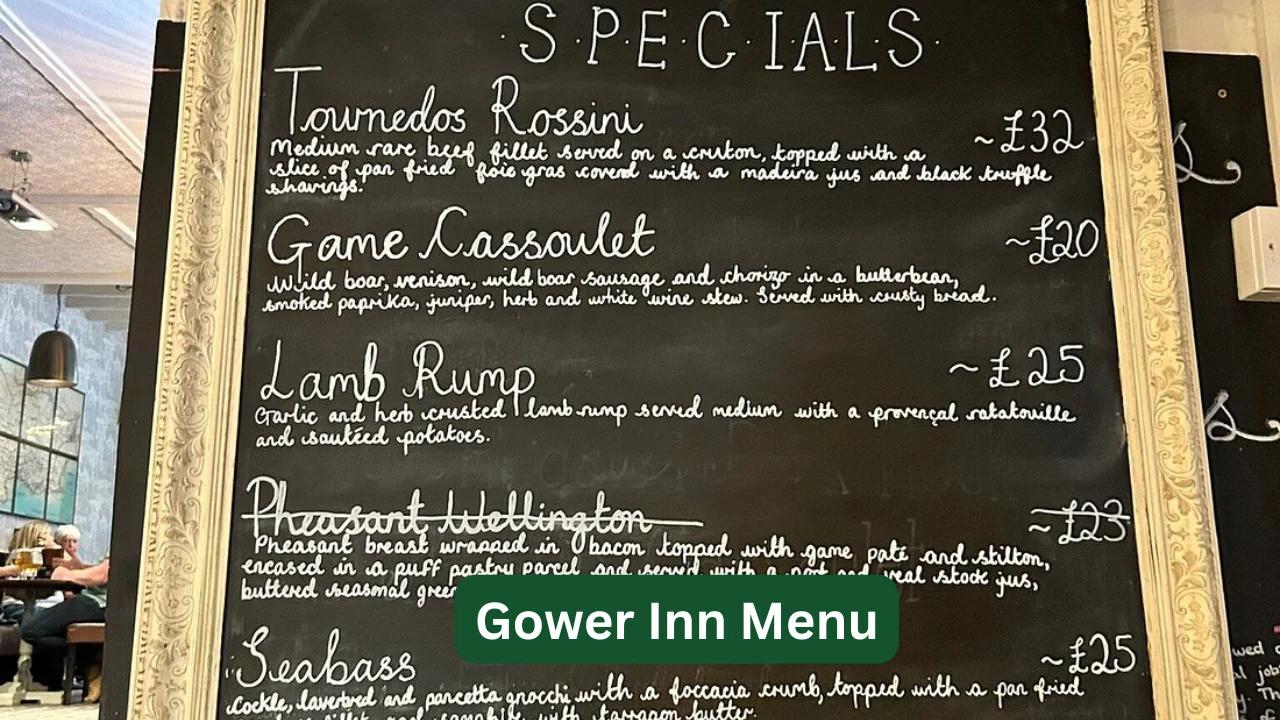 ·S·P·E·C·I·A·L·S·
Tournedos Rossini ~£32
Medium rare beef fillet served on a cruton, topped with a
slice of pan fried foie gras coverd with a madeira jus and black truffle
shavings.
Game Cassoulet ~£20
Wild boar, venison, wild boar sausage and chorizo in a butterbean,
smoked paprika, juniper, herb and white wine stew. Served with crusty bread.
Lamb Rump ~£25
Garlic and herb crusted lamb rump served medium with a provençal ratatouille
and sautéed potatoes.
Pheasant Wellington ~£23
Pheasant breast wrapped in bacon topped with game paté and stilton,
encased in a puff pastry parcel and served with a port and veal stock jus,
buttered seasonal green
Gower Inn Menu
Seabass ~£25
Cockle, laverbred and pancetta gnocchi with a foccacia crumb, topped with a pan fried
fillet and samphire with tarragon butter.